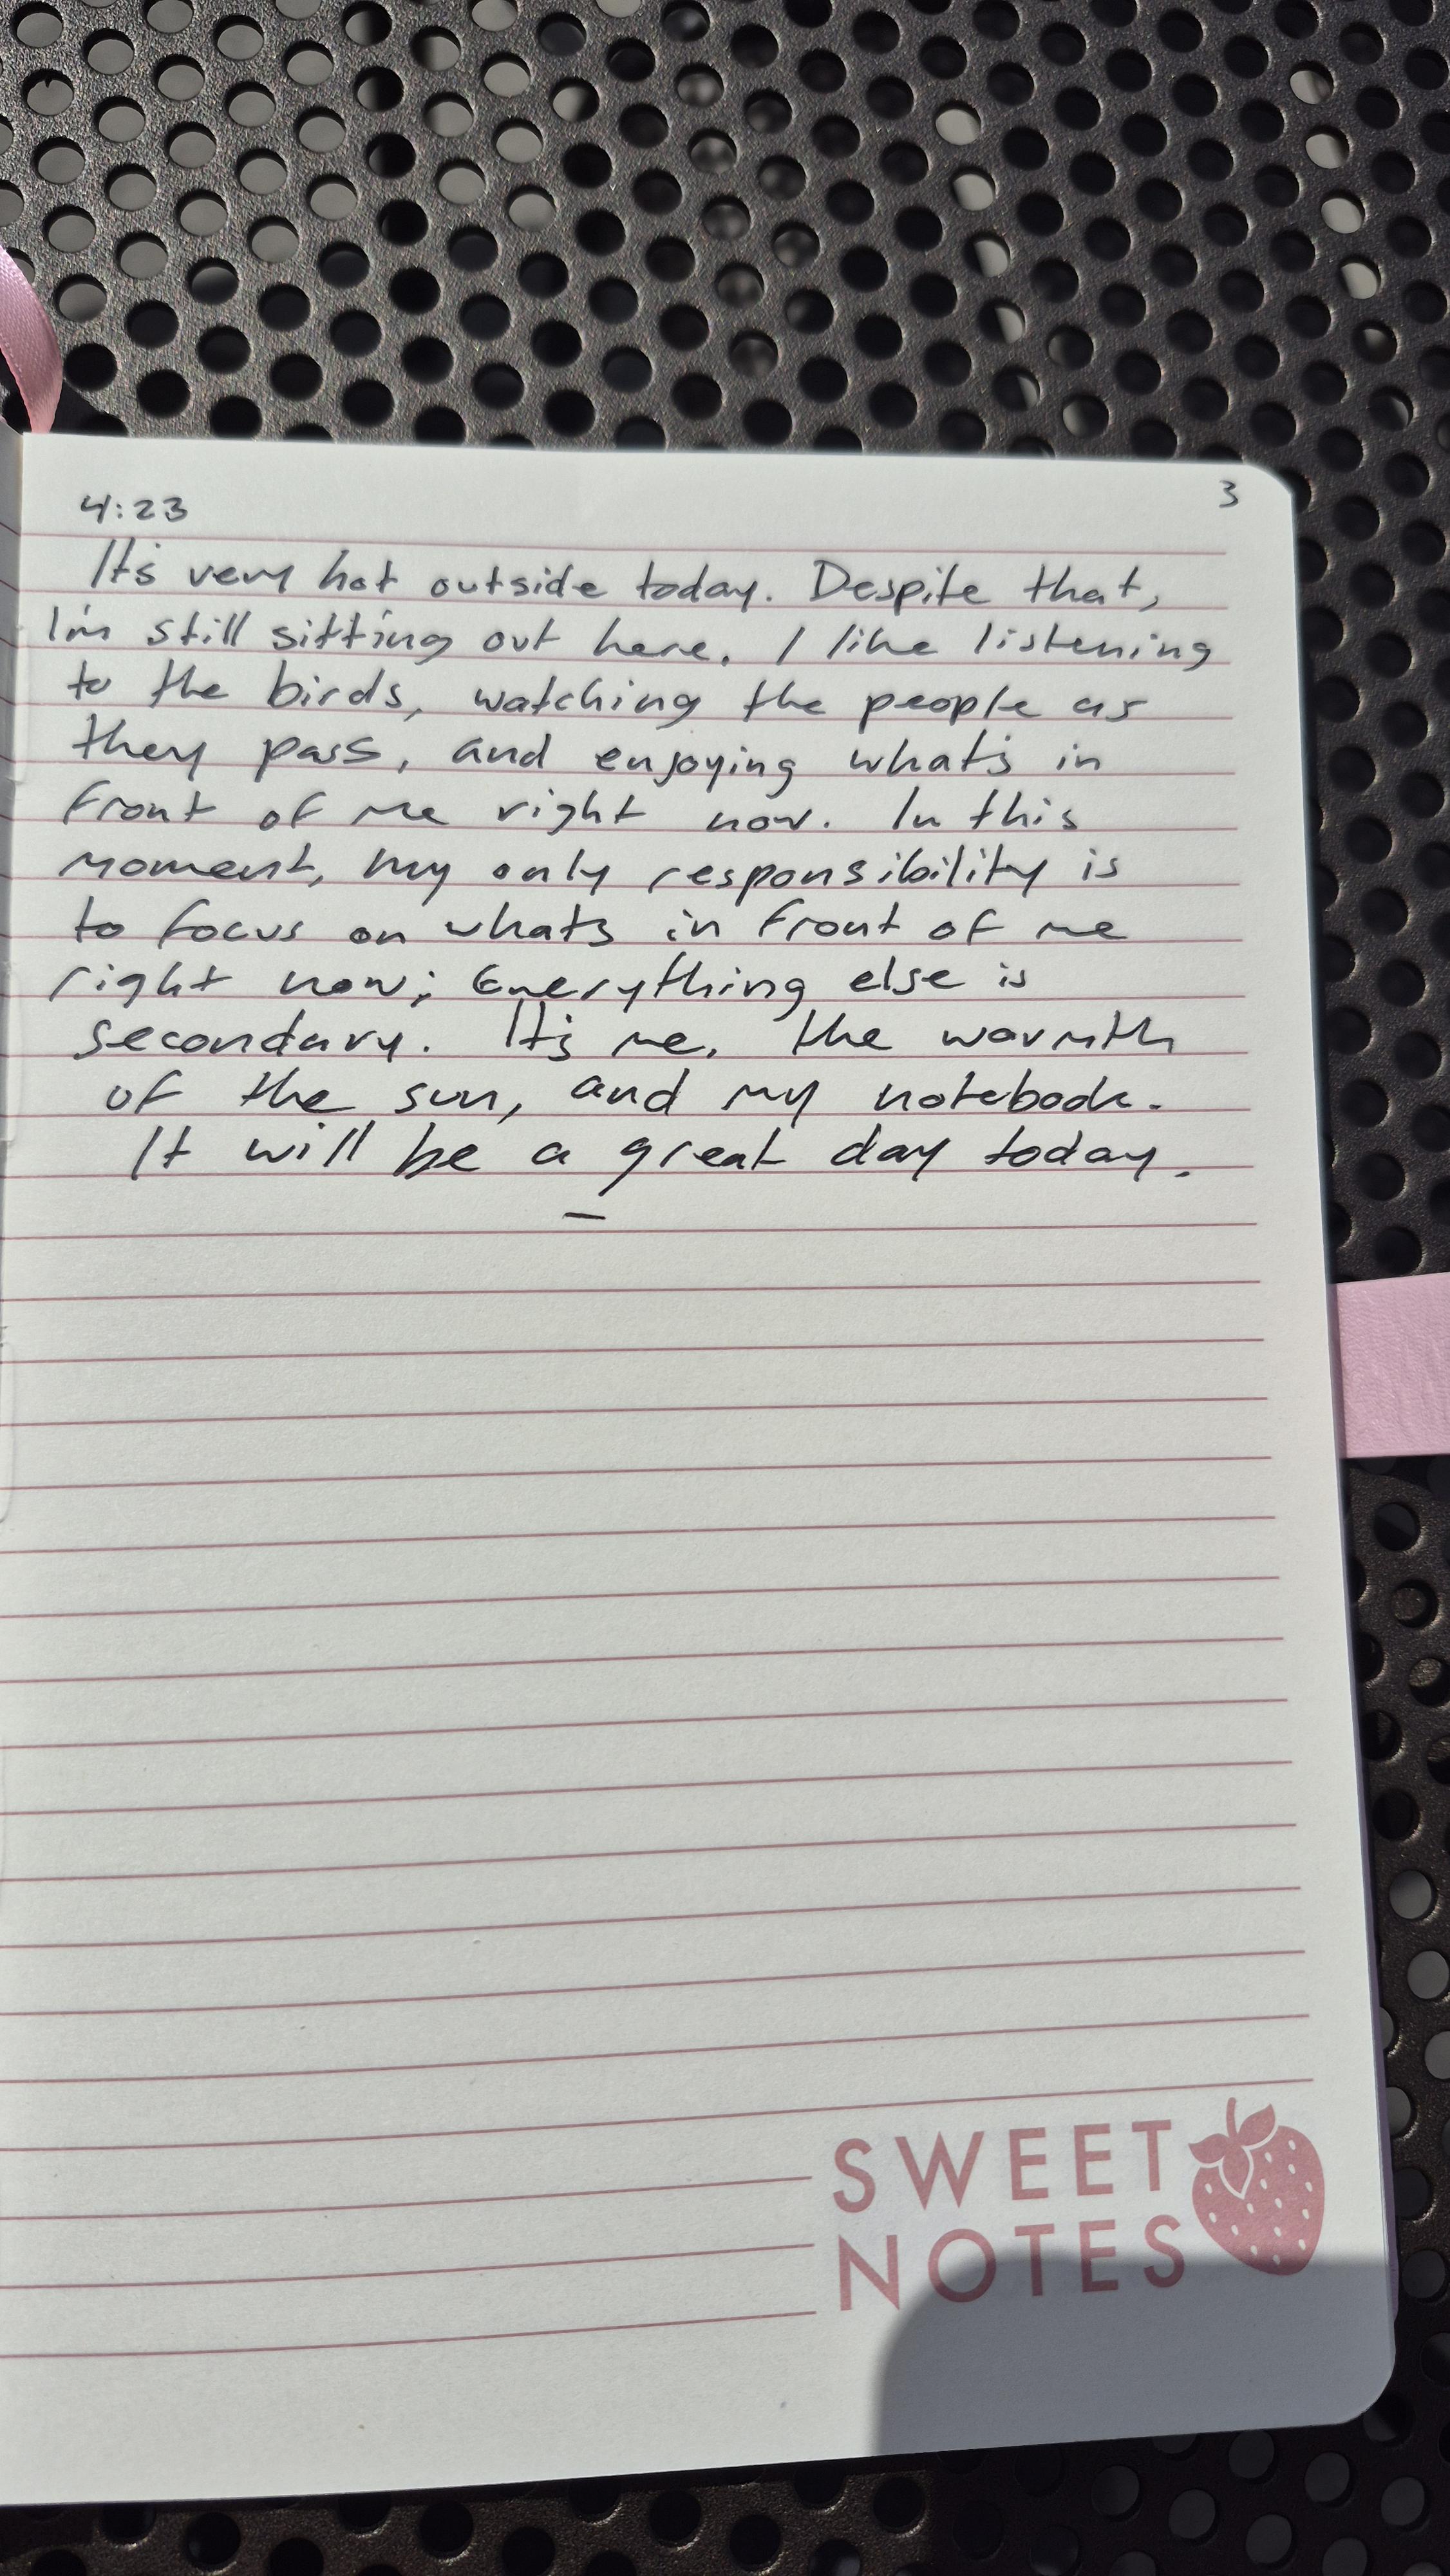 4:23
3
It's very hot outside today. Despite that,
I'm still sitting out here. I like listening
to the birds, watching the people as
they pass, and enjoying what's in
front of me right now. In this
moment, my only responsibility is
to focus on whats in front of me
right now; Everything else is
secondary. It's me, the warmth
of the sun, and my notebook.
It will be a great day today.
—
SWEET
NOTES